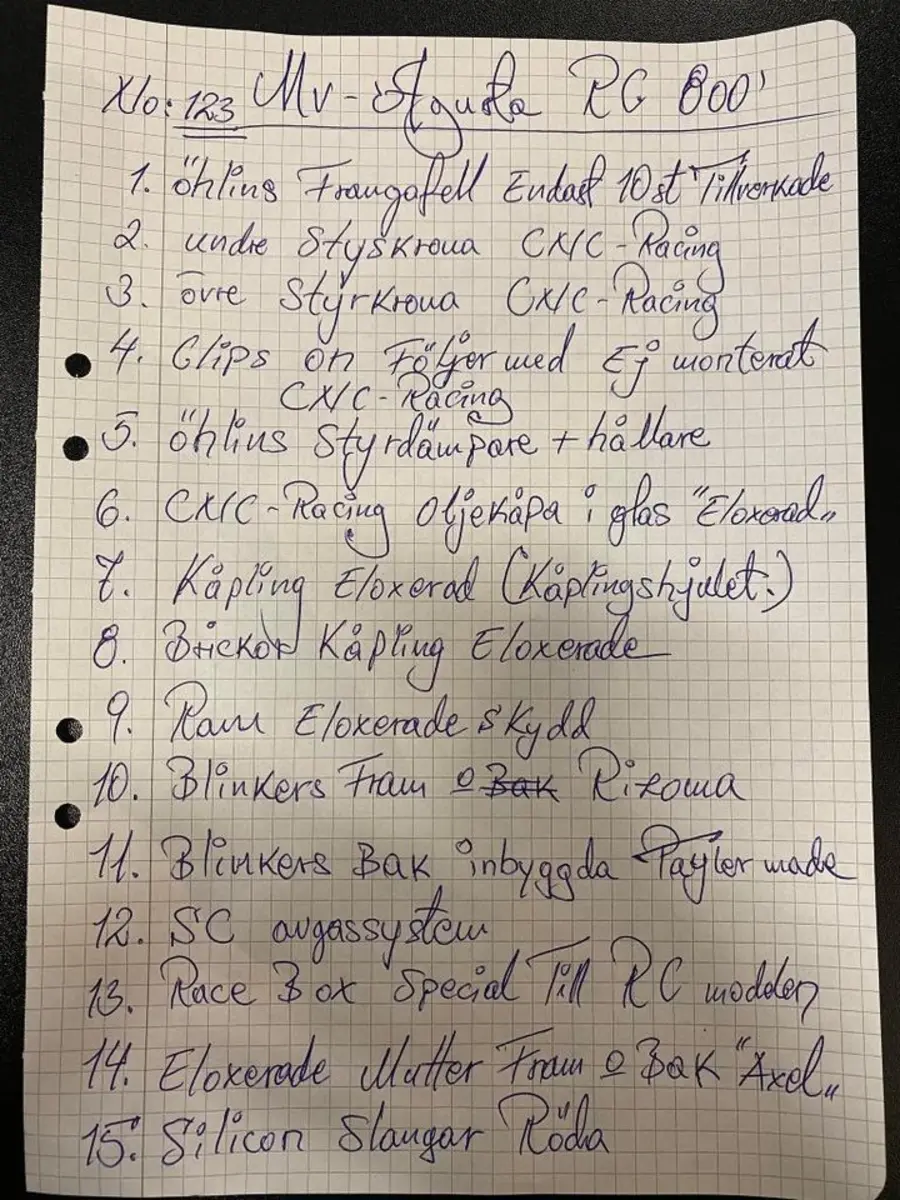 No: 123 Mv-Agusta RC 800'
1. öhlins Framgafell Endast 10st Tillverkade
2. undre Styskrona CNC-Racing
3. övre Styrkrona CNC-Racing
4. Clips on Följer med Ej monterat
CNC-Racing
5. öhlins Styrdämpare + hållare
6. CNC-Racing oljekåpa i glas "Eloxerad„
7. Kåpling Eloxerad (Kåplingshjulet.)
8. Brickor Kåpling Eloxerade
9. Ram Eloxerade skydd
10. Blinkers Fram o Bak Rizoma
11. Blinkers Bak inbyggda Tayler made
12. SC avgassystem
13. Race Box Special Till RC modden
14. Eloxerade Mutter Fram o Bak "Axel„
15. Silicon Slangar Röda